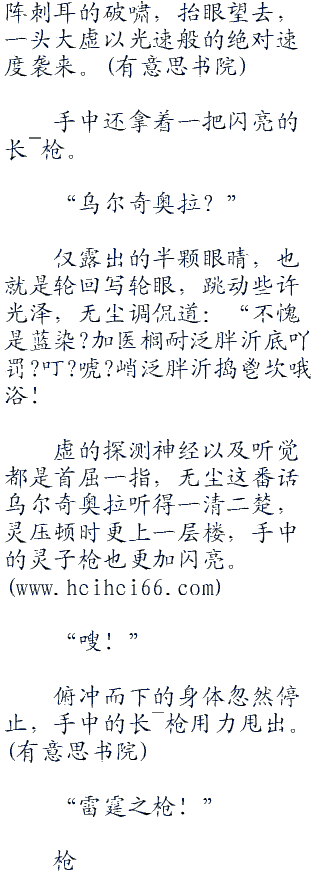 阵刺耳的破啸，抬眼望去，
一头大虚以光速般的绝对速
度袭来。(有意思书院)
手中还拿着一把闪亮的
长¯枪。
“乌尔奇奥拉？”
仅露出的半颗眼睛，也
就是轮回写轮眼，跳动些许
光泽，无尘调侃道：“不愧
是蓝染?加医榈耐泛胖沂底吖
罚?叮?唬?峭泛胖沂捣鳌坎哦
浴！
虚的探测神经以及听觉
都是首屈一指，无尘这番话
乌尔奇奥拉听得一清二楚，
灵压顿时更上一层楼，手中
的灵子枪也更加闪亮。
(www.hcihci66.com)
“嗖！”
俯冲而下的身体忽然停
止，手中的长¯枪用力甩出。
(有意思书院)
“雷霆之枪！”
枪